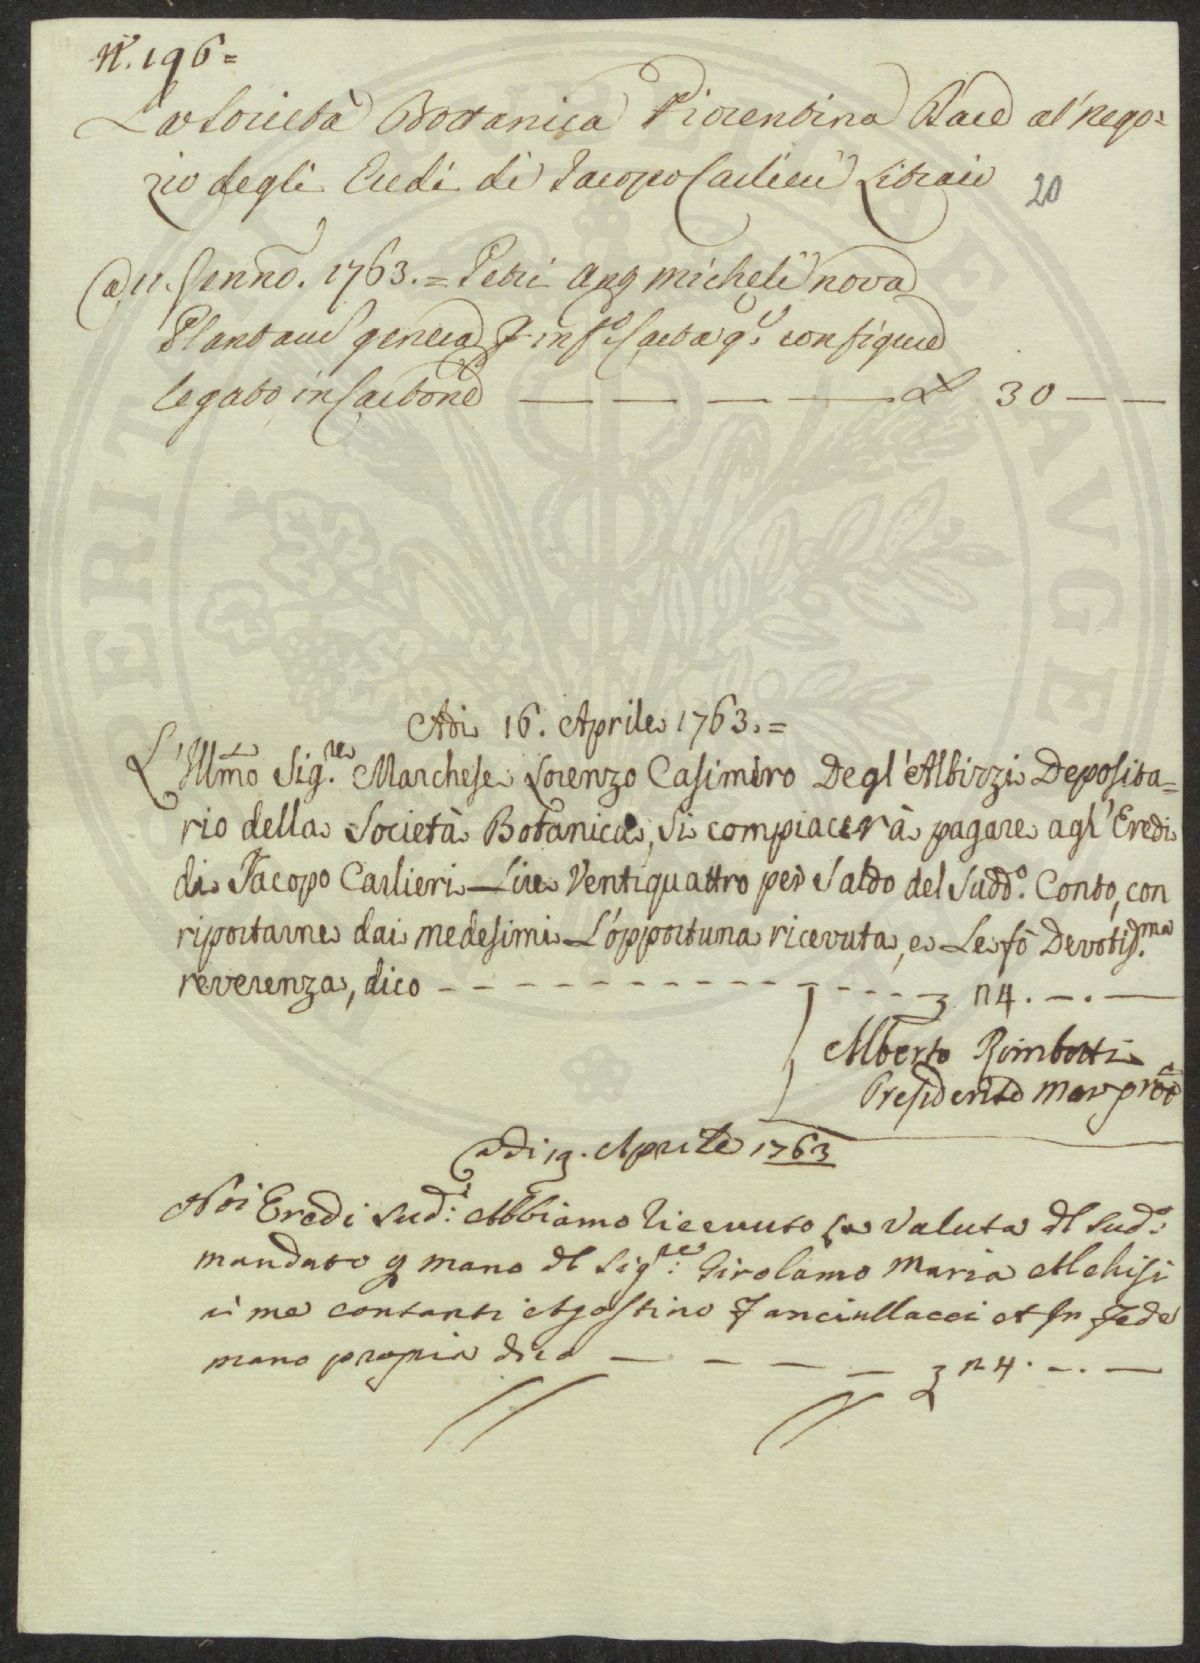 N. 196=
La Società Bottanica Fiorentina Dare al' Nego=
zio degli Eredi di Jacopo Carlieri Libraio
20
A 11. Genno. 1763. = Petri Ang Micheli nova
Plantarum genera in fo. Carta ge. con figure
legato in Cartone — — — — L 30 — —
Adi 16. Aprile 1763. =
L'Illmo Sig.re Marchese Lorenzo Casimiro Degl' Albizzi Deposita=
rio della Società Botanica, Si compiacerà pagare agl' Eredi
di Jacopo Carlieri Lire Ventiquattro per Saldo del Sudd.o Conto, con
riportarne dai medesimi L'opportuna ricevuta, e Le fò Devotis.ma
reverenza, dico - - - - - - - - - - - 24. — . —
Alberto Rimbotti
Presidente mano pro
Adi 19. Aprile 1763
Noi Eredi Sud.i Abbiamo Ricevuto la Valuta dl sud.o
mandato p mano dl Sig.re Girolamo Maria
i me contanti Agostino Fanciullacci et In Fede
mano propria dico — — — — 24. — . —
PERITI AVGE